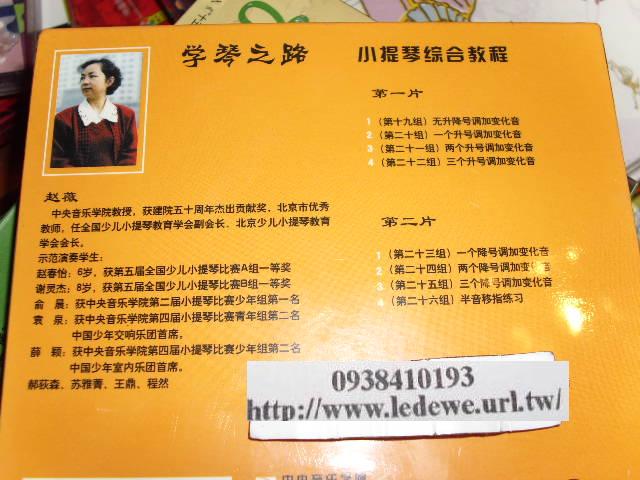 学琴之路 小提琴综合教程
第一片
1（第十九组）无升降号调加变化音
2（第二十组）一个升号调加变化音
3（第二十一组）两个升号调加变化音
4（第二十二组）三个升号调加变化音
第二片
1（第二十三组）一个降号调加变化音
2（第二十四组）两个降号调加变化音
3（第二十五组）三个降号调加变化音
4（第二十六组）半音移指练习
赵薇
中央音乐学院教授，获建院五十周年杰出贡献奖、北京市优秀
教师，任全国少儿小提琴教育学会副会长、北京少儿小提琴教育
学会会长。
示范演奏学生：
赵春怡：6岁，获第五届全国少儿小提琴比赛A组一等奖
谢灵杰：8岁，获第五届全国少儿小提琴比赛B组一等奖
俞 晨：获中央音乐学院第二届小提琴比赛少年组第一名
袁 泉：获中央音乐学院第四届小提琴比赛青年组第二名
中国少年交响乐团首席。
薛 颖：获中央音乐学院第四届小提琴比赛少年组第二名
中国少年室内乐团首席。
郝荻森、苏雅菁、王鼎、程然
0938410193
http://www.ledewe.url.tw/